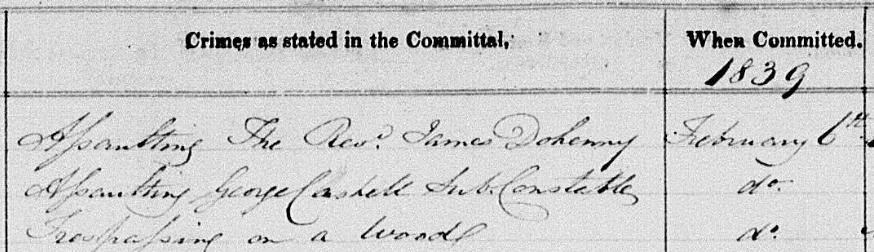 Crimes as stated in the Committal, When Committed.
1839
Assaulting The Revd. James Dohenny February 6th
Assaulting George Caskell Sub. Constable do.
Trespassing on a Wood do.